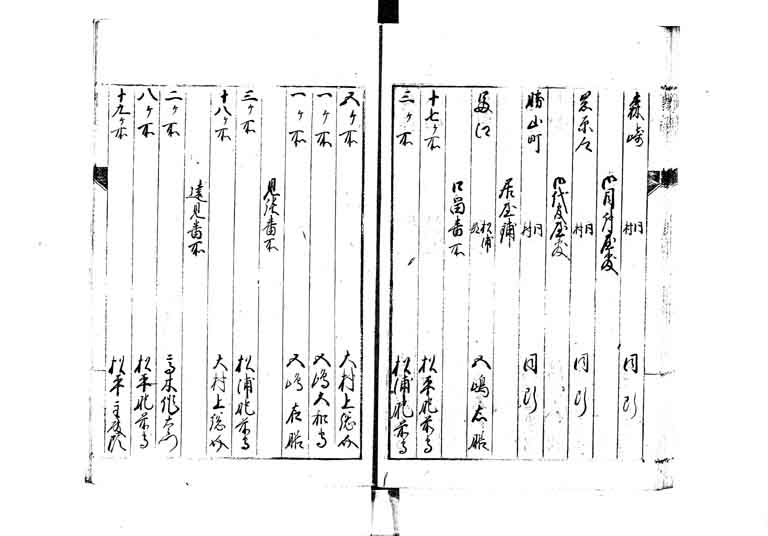 森崎 同村 同断
御目付屋敷
岩原 同村 同断
御代官屋敷
勝山町 同村 同断
居屋鋪
深江 松浦 五嶋
口留番所
十七ヶ所 松平肥前守
三ヶ所 松浦肥前守
五ヶ所 大村上総介
一ヶ所 五嶋大和守
一ヶ所 五嶋
見張番所
三ヶ所 松浦肥前守
十八ヶ所 大村上総介
遠見番所
二ヶ所 高木作右衛門
八ヶ所 松平肥前守
十九ヶ所 松平主殿頭